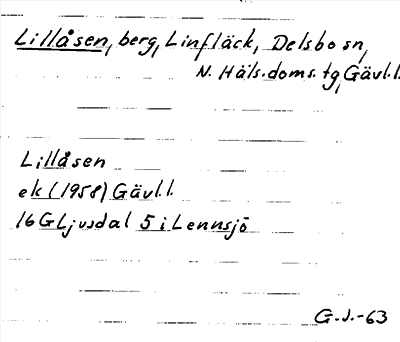 Lillåsen, berg, Linfläck, Delsbo sn,
N. Häls. doms. tg, Gävl.l.
Lillåsen
ek (1958) Gävl.l.
16G Ljusdal 5 i Lennsjö
G.J.-63